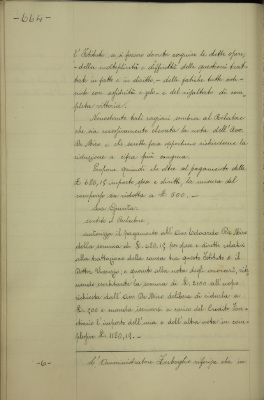 -664-
l'Istituto, e si fosse dovuto eseguire le dette opere,
- della molteplicità e difficoltà delle questioni trat-
tate in fatto e in diritto, - delle fatiche tutte soste-
nute con assiduità e zelo - e del risultato di com-
pleta vittoria.
Nonostante tali ragioni sembra al Relatore
che sia eccessivamente elevata la nota dell'Avv.
De Rico e che sarebbe opportuno richiederne la
riduzione a cifra più congrua.
Propone quindi che oltre al pagamento delle
£ 620,15 importo spese e diritti, la misura del
compenso sia ridotta a £ 500. -
La Giunta,
sentito il Relatore,
autorizza il pagamento all'Avv. De Rico
della somma di £. 620,15 per spese e diritti relativi
alla trattazione della causa tra questo Istituto e il
Dottor e quanto alla nota degli onorari, rite-
nendo esorbitante la somma di £. 2100 all'uopo
richiesta dall'Avv. De Rico delibera di ridurla a
£. 500 e manda iscriversi a carico del Credito Fon-
diario l'importo dell'una e dell'altra nota in com-
plessive £. 1120,15. -
-6- L'Amministratore riferisce che in